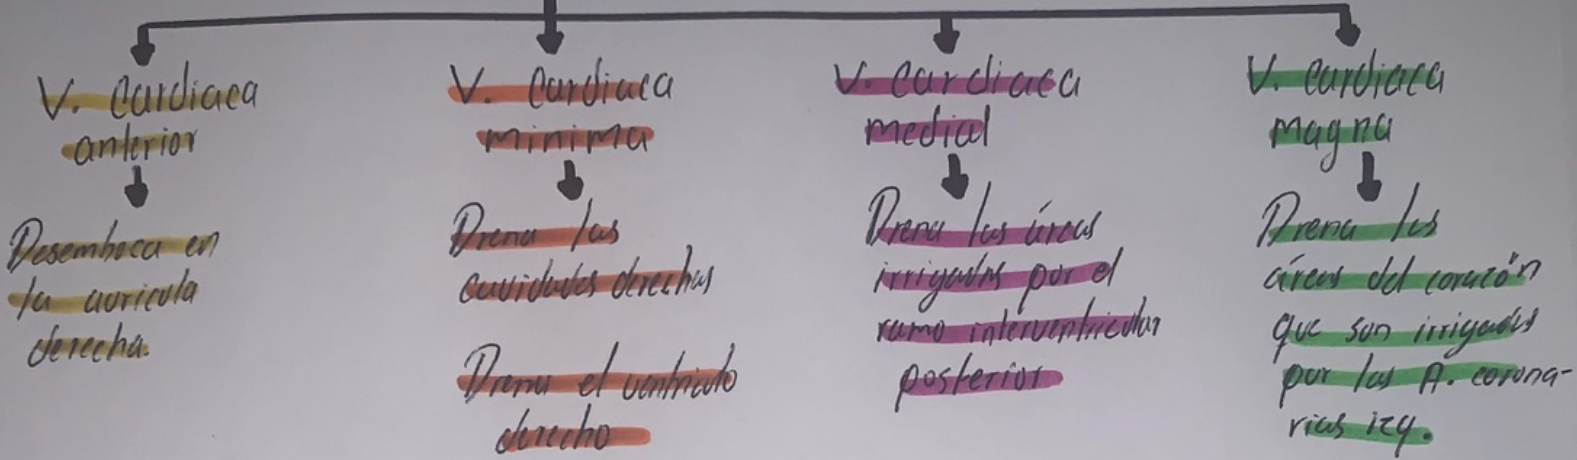 V. Cardiaca
anterior
Desemboca en
la auricula
derecha.
V. Cardiaca
minima
Drena las
cavidades derechas
Drena el ventriculo
derecho
V. cardiaca
medial
Drena las áreas
irrigadas por el
ramo interventricular
posterior
V. cardiaca
magna
Drena las
áreas del corazón
que son irrigadas
por las A. corona-
rias izq.